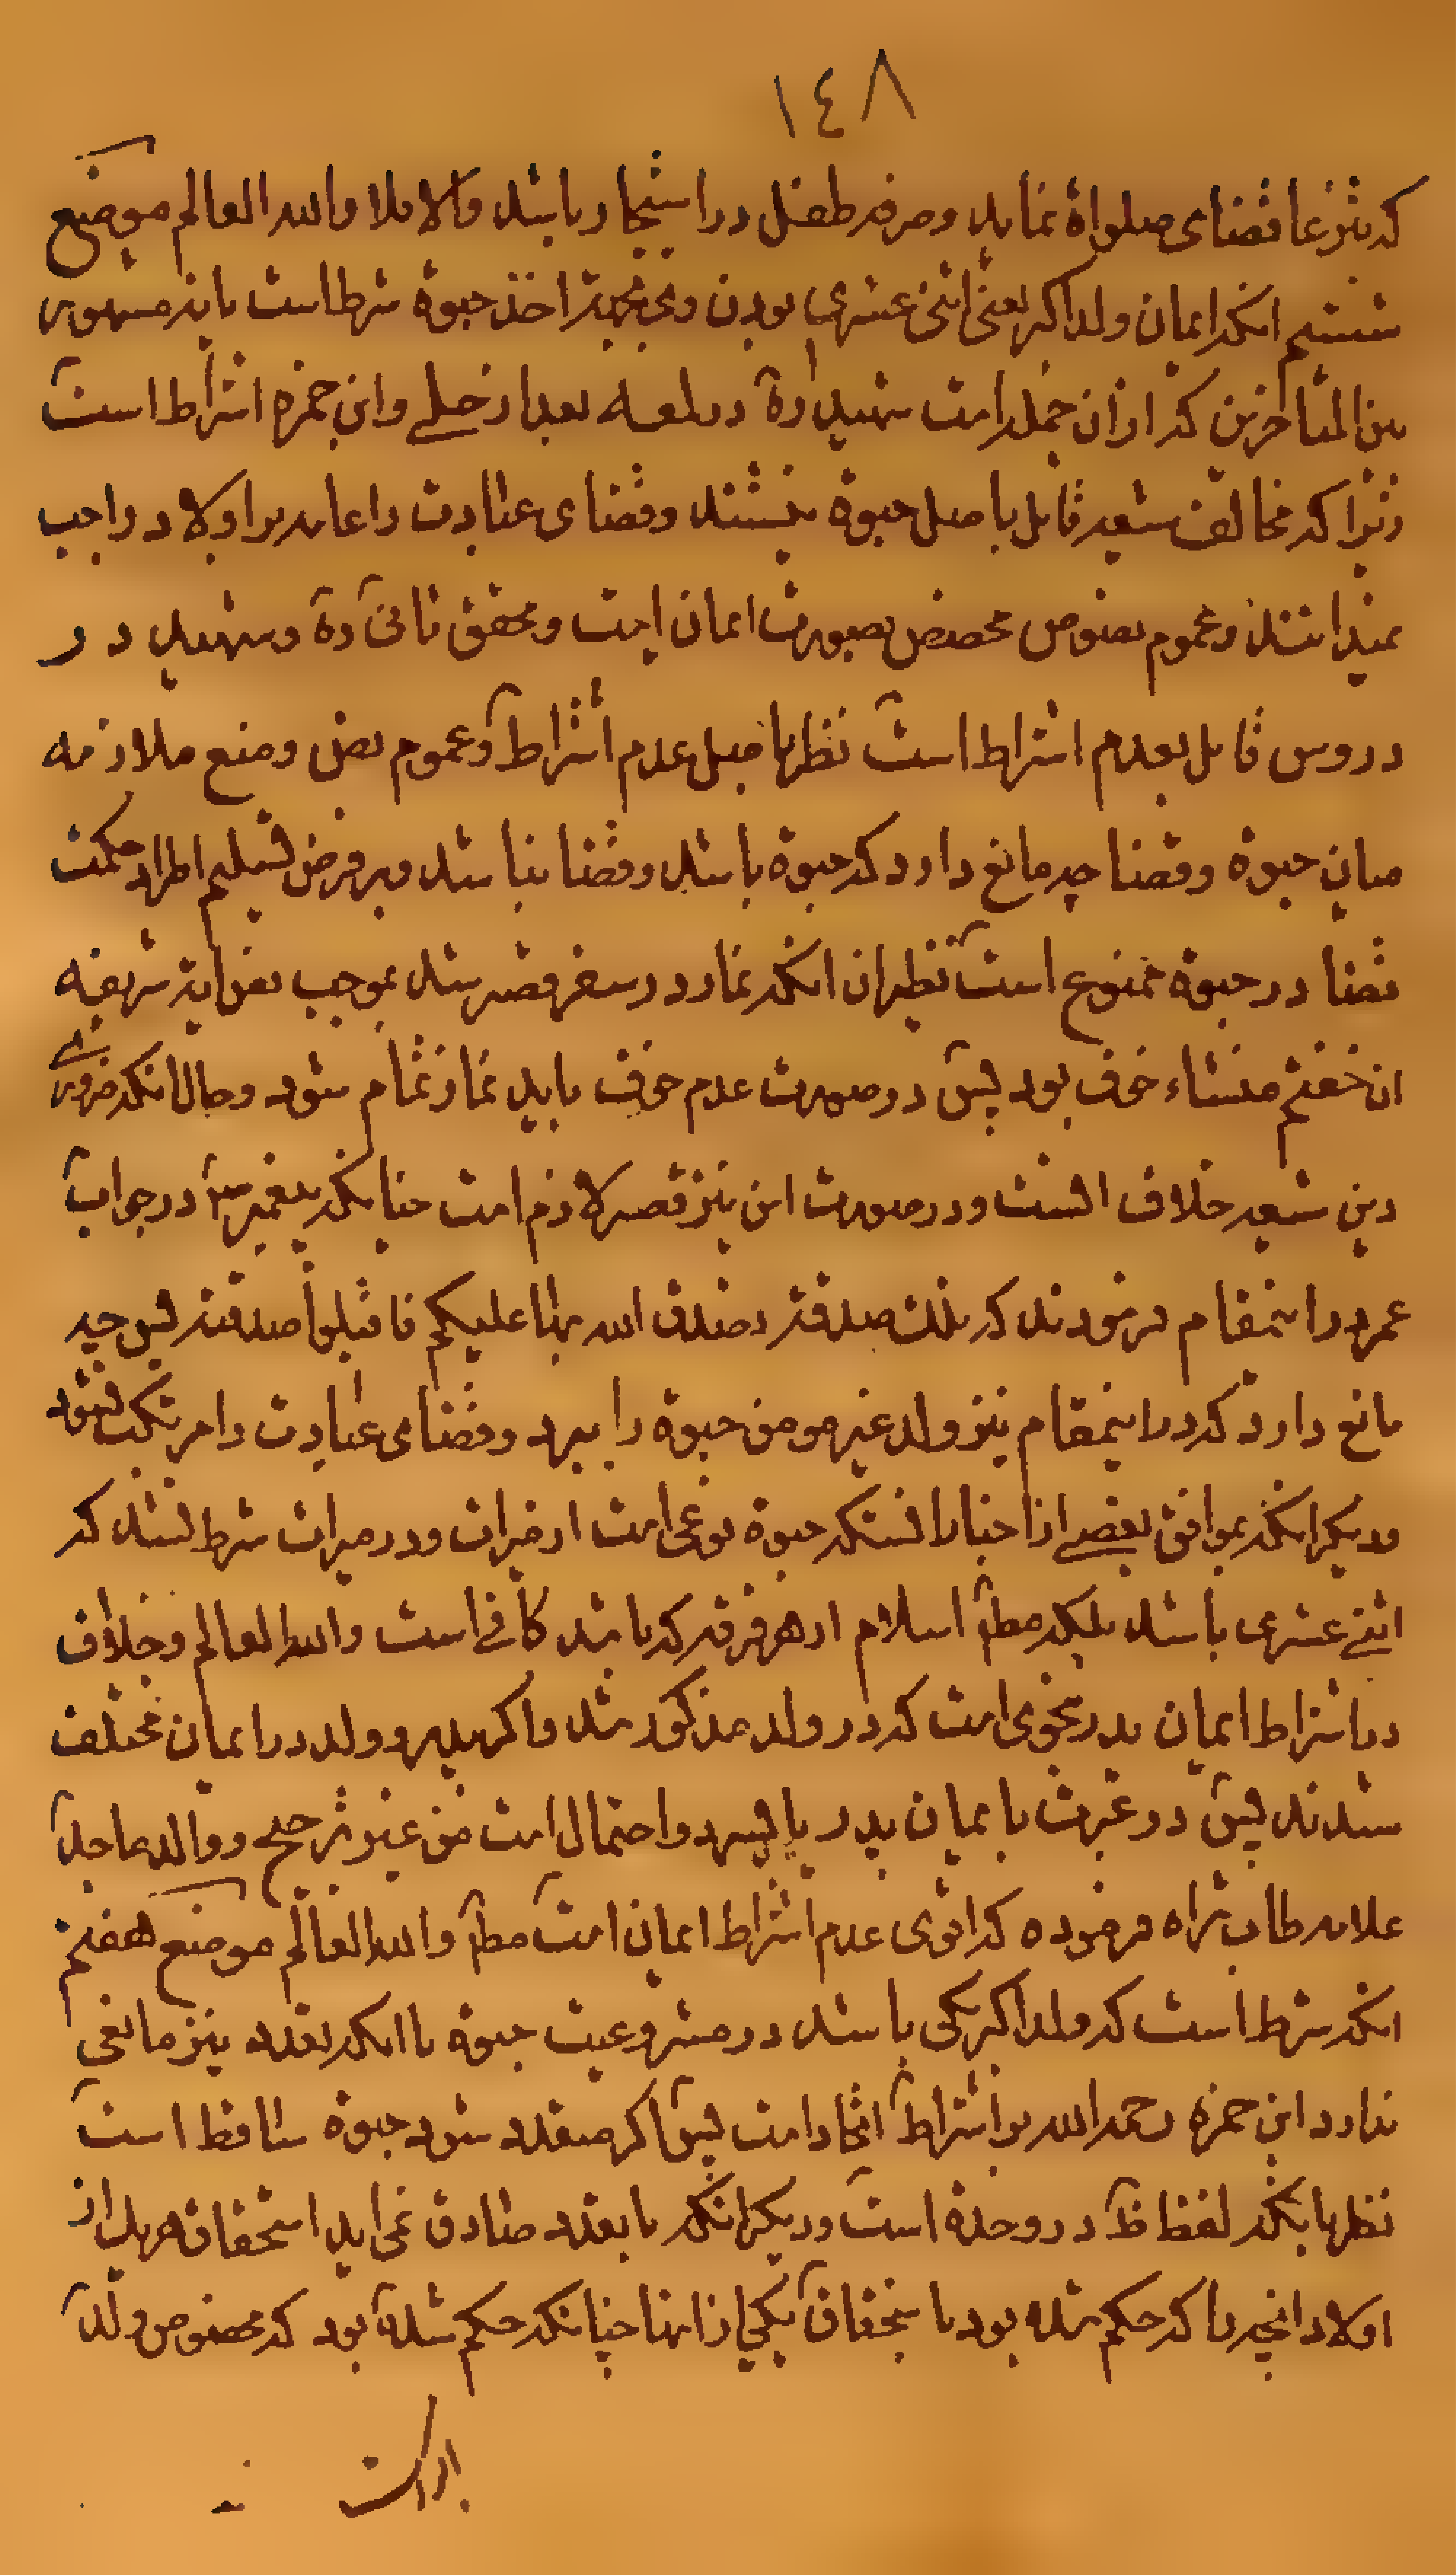 ١٤٨
که تبرعا قضای صلواة نماید و صرفه طفل در استیجار باشد والا فلا والله العالم موضع
ششم انکه ایمان ولد اکبر یعنی اثنی عشری بودن وی بجهة اخذ حبوة شرط است یا نه مشهور
بین المتاخرین که از ان جمله است شهید ره در لمعه بعد از حلی و ابن حمزه اشتراط است
زیرا که مخالف شیعه قایل باصل حبوة نیستند و قضای عبادت را عاید بر اولاد واجب
نمیدانند و عموم نصوص مخصص بصورت ایمان است و محقق ثانی ره و شهید در
دروس قایل بعدم اشتراط است نظر باصل عدم اشتراط و عموم نص و منع ملازمه
میان حبوة و قضا چه مانع دارد که حبوة باشد و قضا نباشد و بر فرض تسلیم اطراد حکمت
قضا در حبوة ممنوع است نظیر ان انکه نماز در سفر قصر شد بموجب نص ایة شریفه
ان خفتم منشاء خوف بود پس در صورت عدم خوف باید نماز تمام شود و حال انکه ضروری
دین شیعه خلاف انست و در صورت امن نیز قصر لازم است چنانکه پیغمبر ص در جواب
عمر در اینمقام فرمودند که تلک صدقة تصدق الله بها علیکم فاقبلوا صدقته پس چه
مانع دارد که در اینمقام نیز ولد غیر مومن حبوة را ببرد و قضای عبادت را مرتکب نشود
و دیگر انکه بموافق بعضی از اخبار انستکه حبوة نوعی است از میراث و در میراث شرط نشده که
اثنی عشری باشد بلکه مطلق اسلام از هر فرقه که باشد کافی است والله العالم و خلاف
در اشتراط ایمان پدر بنحوی است که در ولد مذکور شد و اگر پدر و ولد در ایمان مختلف
شدند پس در عبرت بایمان پدر یا پسر دو احتمال است من غیر ترجیح و والد ماجد
علامه طاب ثراه فرموده که اقوی عدم اشتراط ایمان است مطلق والله العالم موضع هفتم
انکه شرط است که ولد اکبر یکی باشد در مشروعیت حبوة یا انکه تعدد نیز مانعی
ندارد ابن حمزه رحمه الله بر اشتراط اتحاد است پس اگر متعدد شود حبوة ساقط است
نظر بانکه لفظ ظ در وحدة است و دیگر انکه با تعدد صادق نمی اید استحقاق هر یک از
اولاد انچیز را که حکم شده بود باستحقاق یکی از انها چنانکه حکم شده بود که مخصوص ولد